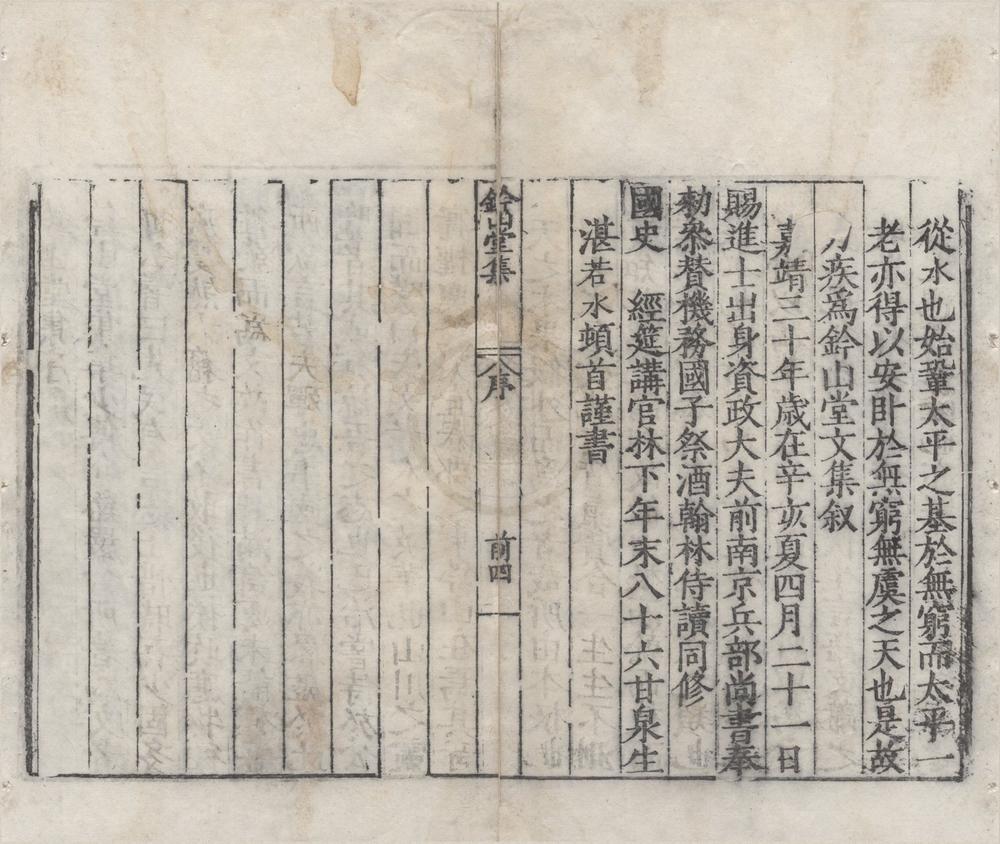 從水也始鞏太平之基於無窮而太平一
老亦得以安卧於無窮無虞之天也是故
力疾爲鈐山堂文集叙
嘉靖三十年歲在辛亥夏四月二十一日
賜進士出身資政大夫前南京兵部尚書奉
勑叅贊機務國子祭酒翰林侍讀同修
國史 經筵講官林下年末八十六甘泉生
湛若水頓首謹書
鈐山堂集 序 前四